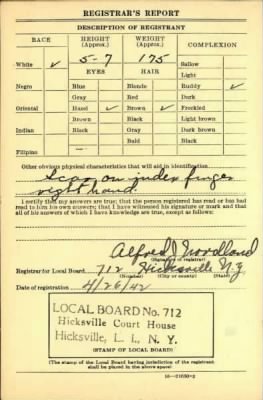 REGISTRAR'S REPORT
DESCRIPTION OF REGISTRANT
RACE HEIGHT (Approx.) WEIGHT (Approx.) COMPLEXION
White ✓ 5-7 175 Sallow
Light
EYES HAIR
Negro Blue Blonde Ruddy ✓
Gray Red Dark
Oriental Hazel ✓ Brown ✓ Freckled
Brown Black Light brown
Indian Black Gray Dark brown
Bald Black
Filipino
Other obvious physical characteristics that will aid in identification
Scar on index finger
right hand.
I certify that my answers are true; that the person registered has read or has had
read to him his own answers; that I have witnessed his signature or mark and that
all of his answers of which I have knowledge are true, except as follows:
Alfred J Woodland
(Signature of registrar)
Registrar for Local Board 712 Hicksville N.Y.
(Number) (City or county) (State)
Date of registration 4/26/42
LOCAL BOARD No. 712
Hicksville Court House
Hicksville, L. I., N. Y.
(STAMP OF LOCAL BOARD)
(The stamp of the Local Board having jurisdiction of the registrant
shall be placed in the above space)